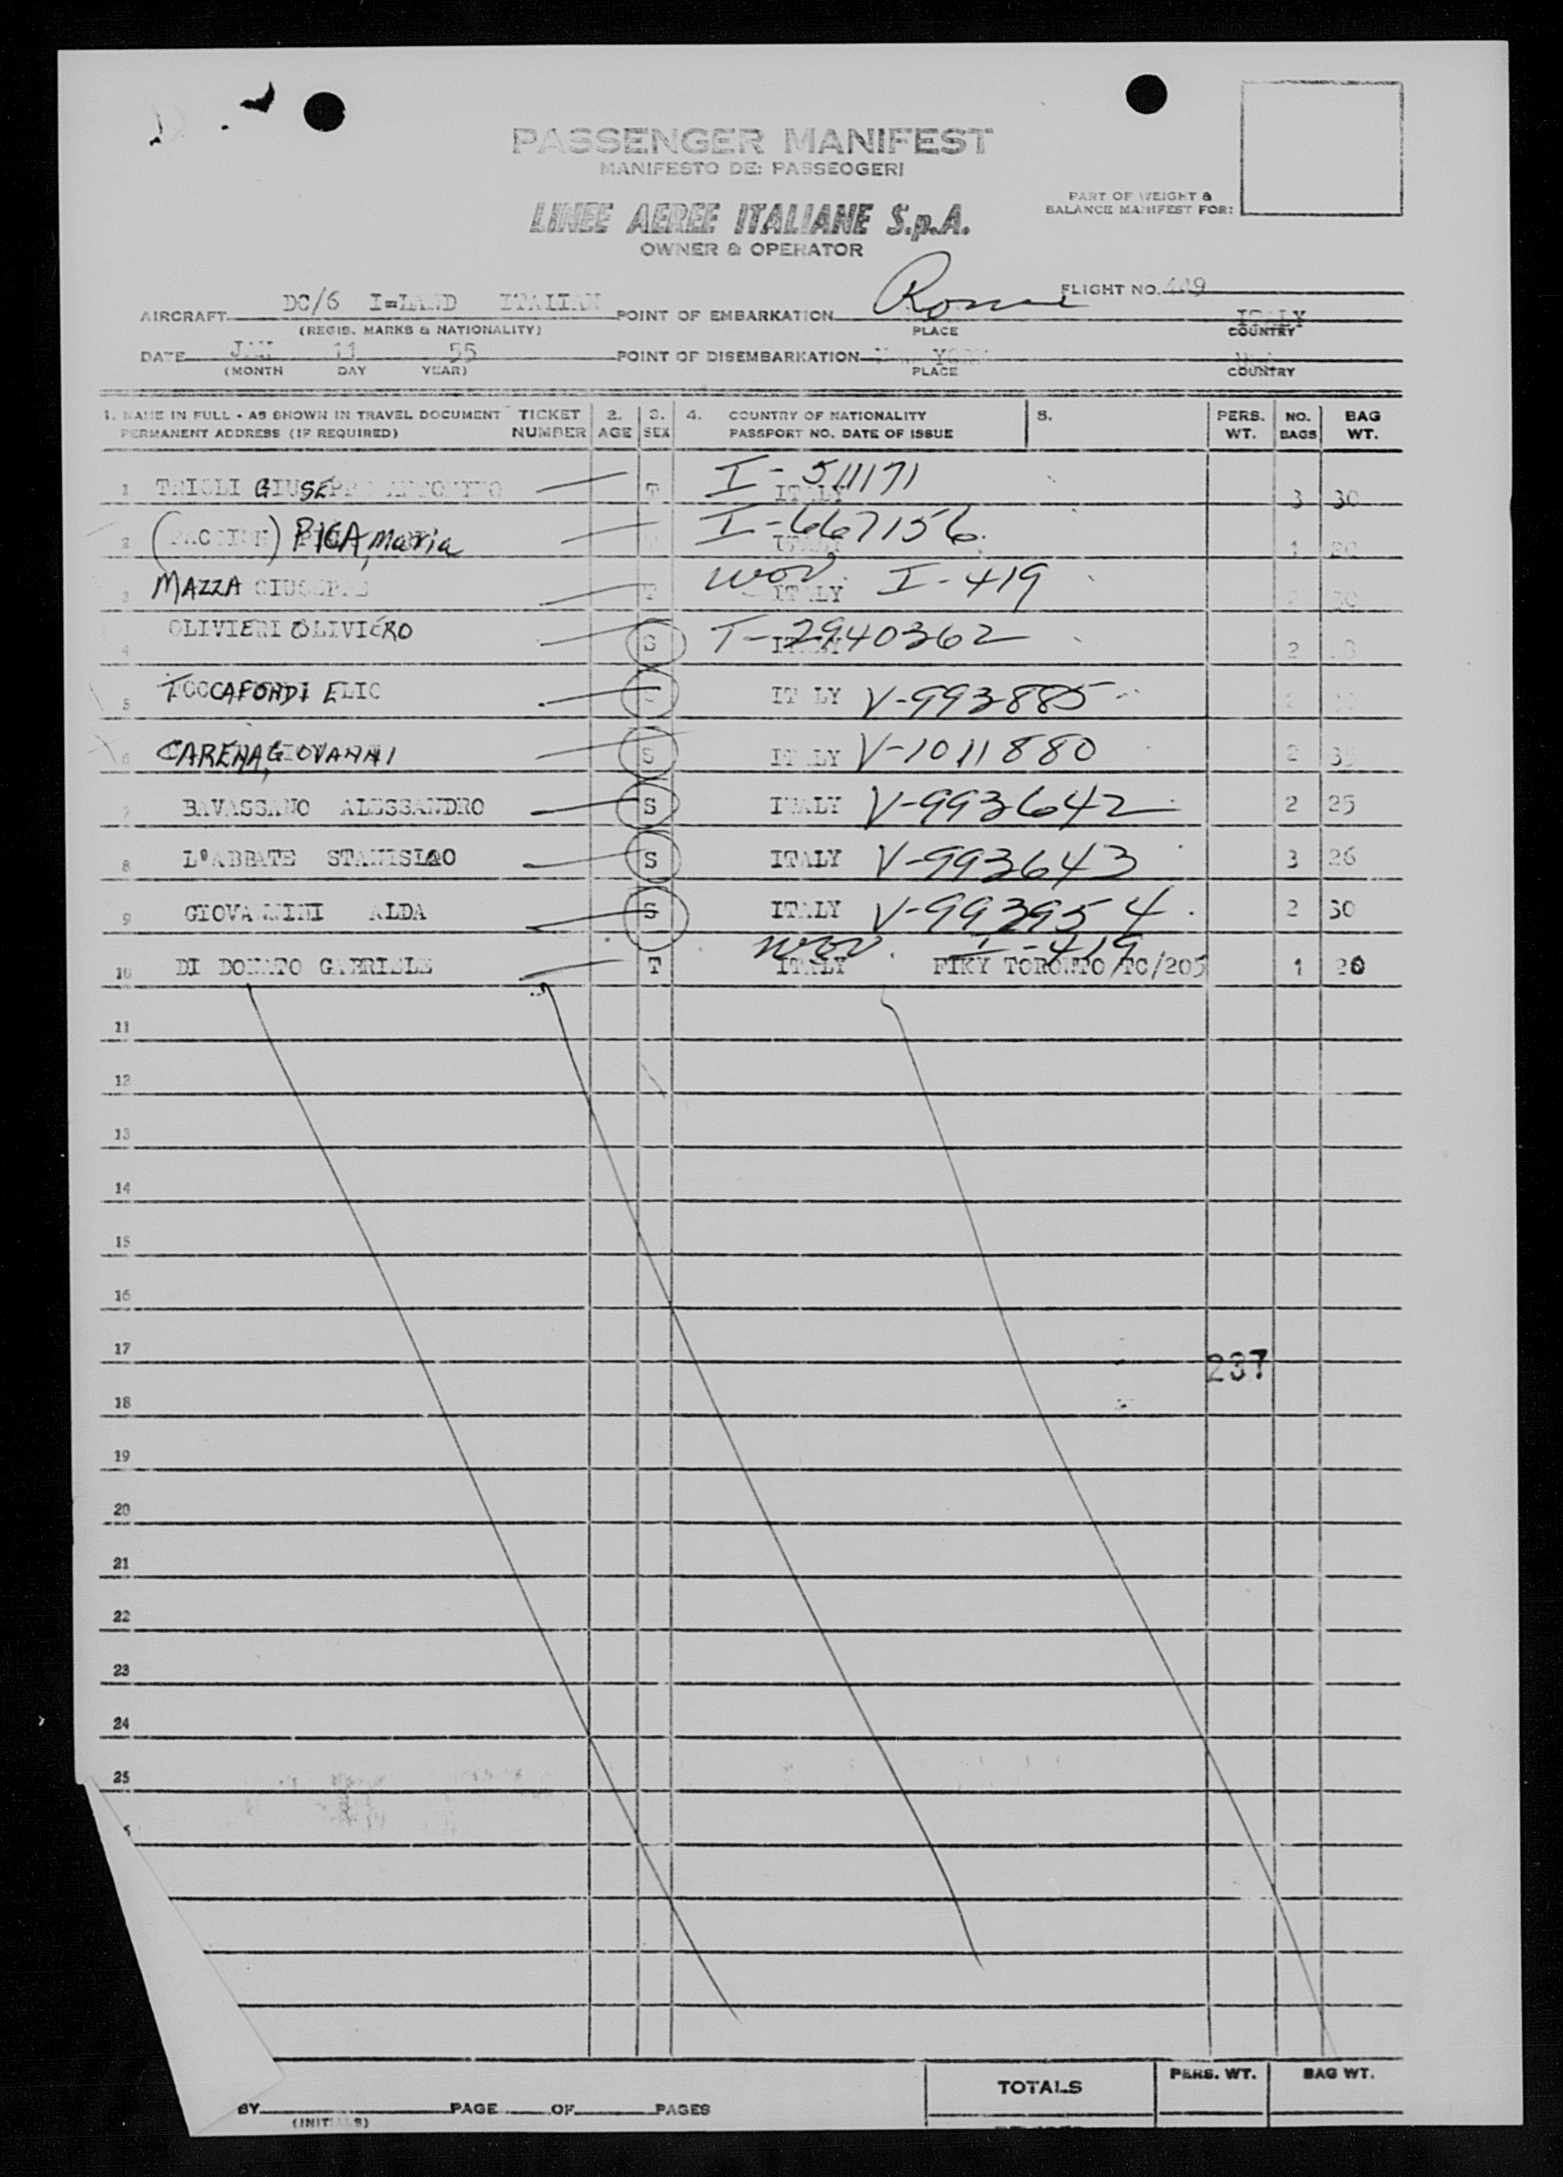 PASSENGER MANIFEST
MANIFESTO DEI PASSEOGERI
LINEE AEREE ITALIANE S.p.A.
OWNER & OPERATOR
PART OF WEIGHT &
BALANCE MANIFEST FOR:
FLIGHT NO.
AIRCRAFT DC/6 I-LAND ITALIAN POINT OF EMBARKATION Rome ITALY
(REGIS. MARKS & NATIONALITY) PLACE COUNTRY
DATE JAN 11 55 POINT OF DISEMBARKATION YORK
(MONTH DAY YEAR) PLACE COUNTRY
1. NAME IN FULL - AS SHOWN IN TRAVEL DOCUMENT TICKET 2. 3. 4. COUNTRY OF NATIONALITY 5. PERS. NO. BAG
PERMANENT ADDRESS (IF REQUIRED) NUMBER AGE SEX PASSPORT NO. DATE OF ISSUE WT. BAGS WT.
1 TRIOLI GIUSEPPE ANTONINO T ITALY I-511171 3 30
2 ( ) PICA, Maria ITALY I-667156 1 20
3 MAZZA GIUSEPPE T ITALY wov. I-419
4 OLIVIERI OLIVIERO S ITALY T-2940362 2
5 TOCCAFONDI ELIO ITALY V-993885
6 CARENA, GIOVANNI S ITALY V-1011880 2
7 BAVASSANO ALESSANDRO S ITALY V-993642 2 25
8 L'ABBATE STANISLAO S ITALY V-993643 3 26
9 GIOVANNINI ALDA S ITALY V-993954 2 30
wov. I-419
10 DI DONATO GABRIELE T ITALY FIKY TORONTO/TC/205 1 20
11
12
13
14
15
16
17
237
18
19
20
21
22
23
24
25
TOTALS PERS. WT. BAG WT.
BY PAGE OF PAGES
(INITIALS)